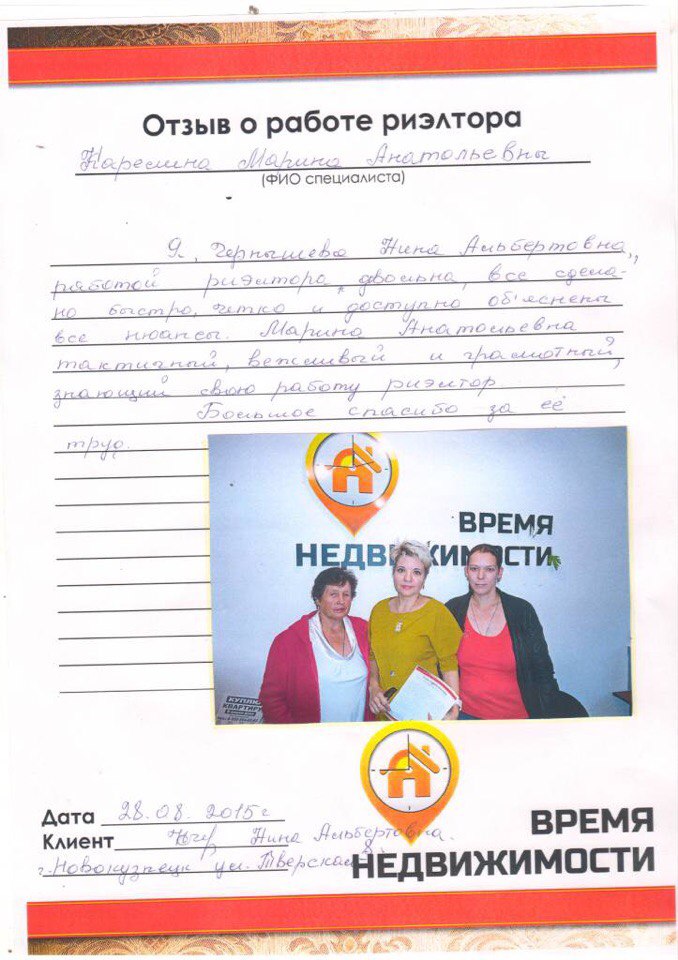 Отзыв о работе риэлтора
Марина Анатольевны
(ФИО специалиста)
Я, Чернышева Нина Альбертовна,
работой риэлтора двольна, все сдела-
но быстро, четко и доступно об'яснены
все нюансы. Марина Анатольевна
тактичный, вежливый и грамотный,
знающий свою работу риэлтор
Большое спасибо за её
труд.
ВРЕМЯ
НЕДВИЖИМОСТИ
КУПЛЮ
КВАРТИРУ
Дата 28.08.2015г
Клиент Нина Альбертовна.
г. Новокузнецк ул. Тверская 8
ВРЕМЯ
НЕДВИЖИМОСТИ